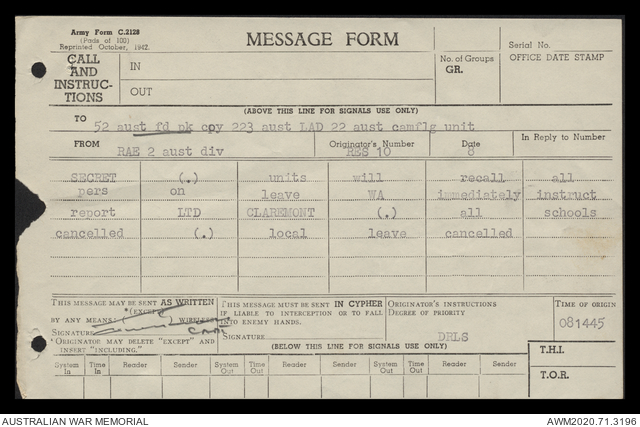 Army Form C.2128
(Pads of 100)
Reprinted October, 1942.
MESSAGE FORM
Serial No.
CALL AND INSTRUC-TIONS
IN
OUT
No. of Groups
GR.
OFFICE DATE STAMP
(ABOVE THIS LINE FOR SIGNALS USE ONLY)
TO
52 aust fd pk coy 223 aust LAD 22 aust camflg unit
FROM
RAE 2 aust div
Originator's Number
RES 10
Date
8
In Reply to Number
SECRET (.) units will recall all
pers on leave WA immediately instruct
report LTD CLAREMONT (.) all schools
cancelled (.) local leave cancelled
THIS MESSAGE MAY BE SENT AS WRITTEN
*(EXCEPT
BY ANY MEANS ) WIRELESS
SIGNATURE
CAPT
*ORIGINATOR MAY DELETE "EXCEPT" AND
INSERT "INCLUDING."
THIS MESSAGE MUST BE SENT IN CYPHER
IF LIABLE TO INTERCEPTION OR TO FALL
INTO ENEMY HANDS.
SIGNATURE
ORIGINATOR'S INSTRUCTIONS
DEGREE OF PRIORITY
DRLS
TIME OF ORIGIN
081445
(BELOW THIS LINE FOR SIGNALS USE ONLY)
T.H.I.
T.O.R.
System In
Time In
Reader
Sender
System Out
Time Out
Reader
Sender
System Out
Time Out
Reader
Sender
AUSTRALIAN WAR MEMORIAL
AWM2020.71.3196